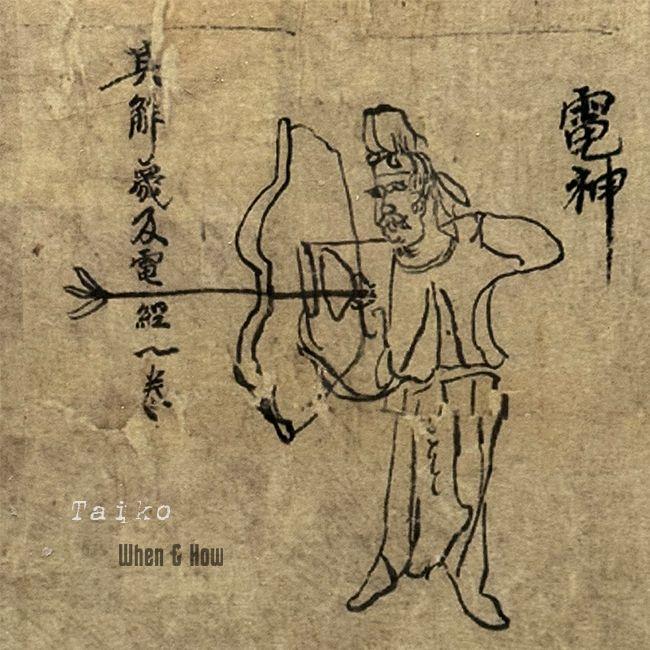 電神
其解夢及電經一卷
Taiko
When & How